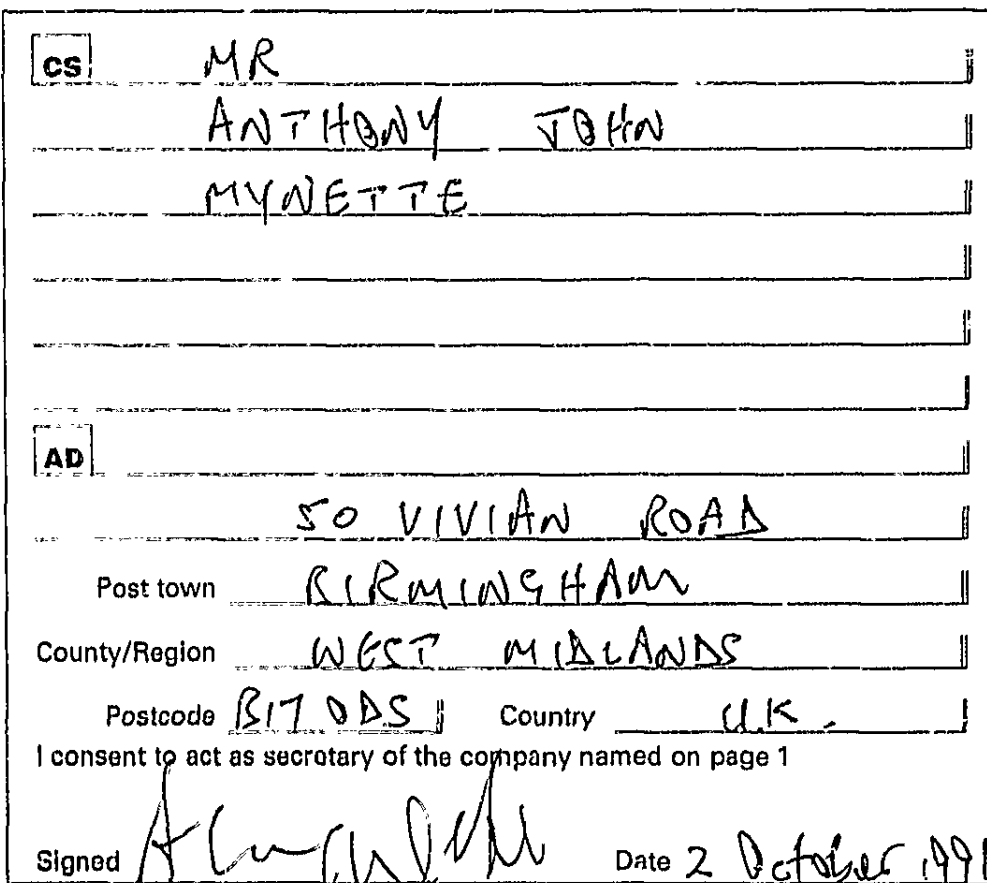 CS MR
ANTHONY JOHN
MYNETTE
AD
50 VIVIAN ROAD
Post town BIRMINGHAM
County/Region WEST MIDLANDS
Postcode B17 0DS Country U.K.
I consent to act as secretary of the company named on page 1
Signed Date 2 October 1991